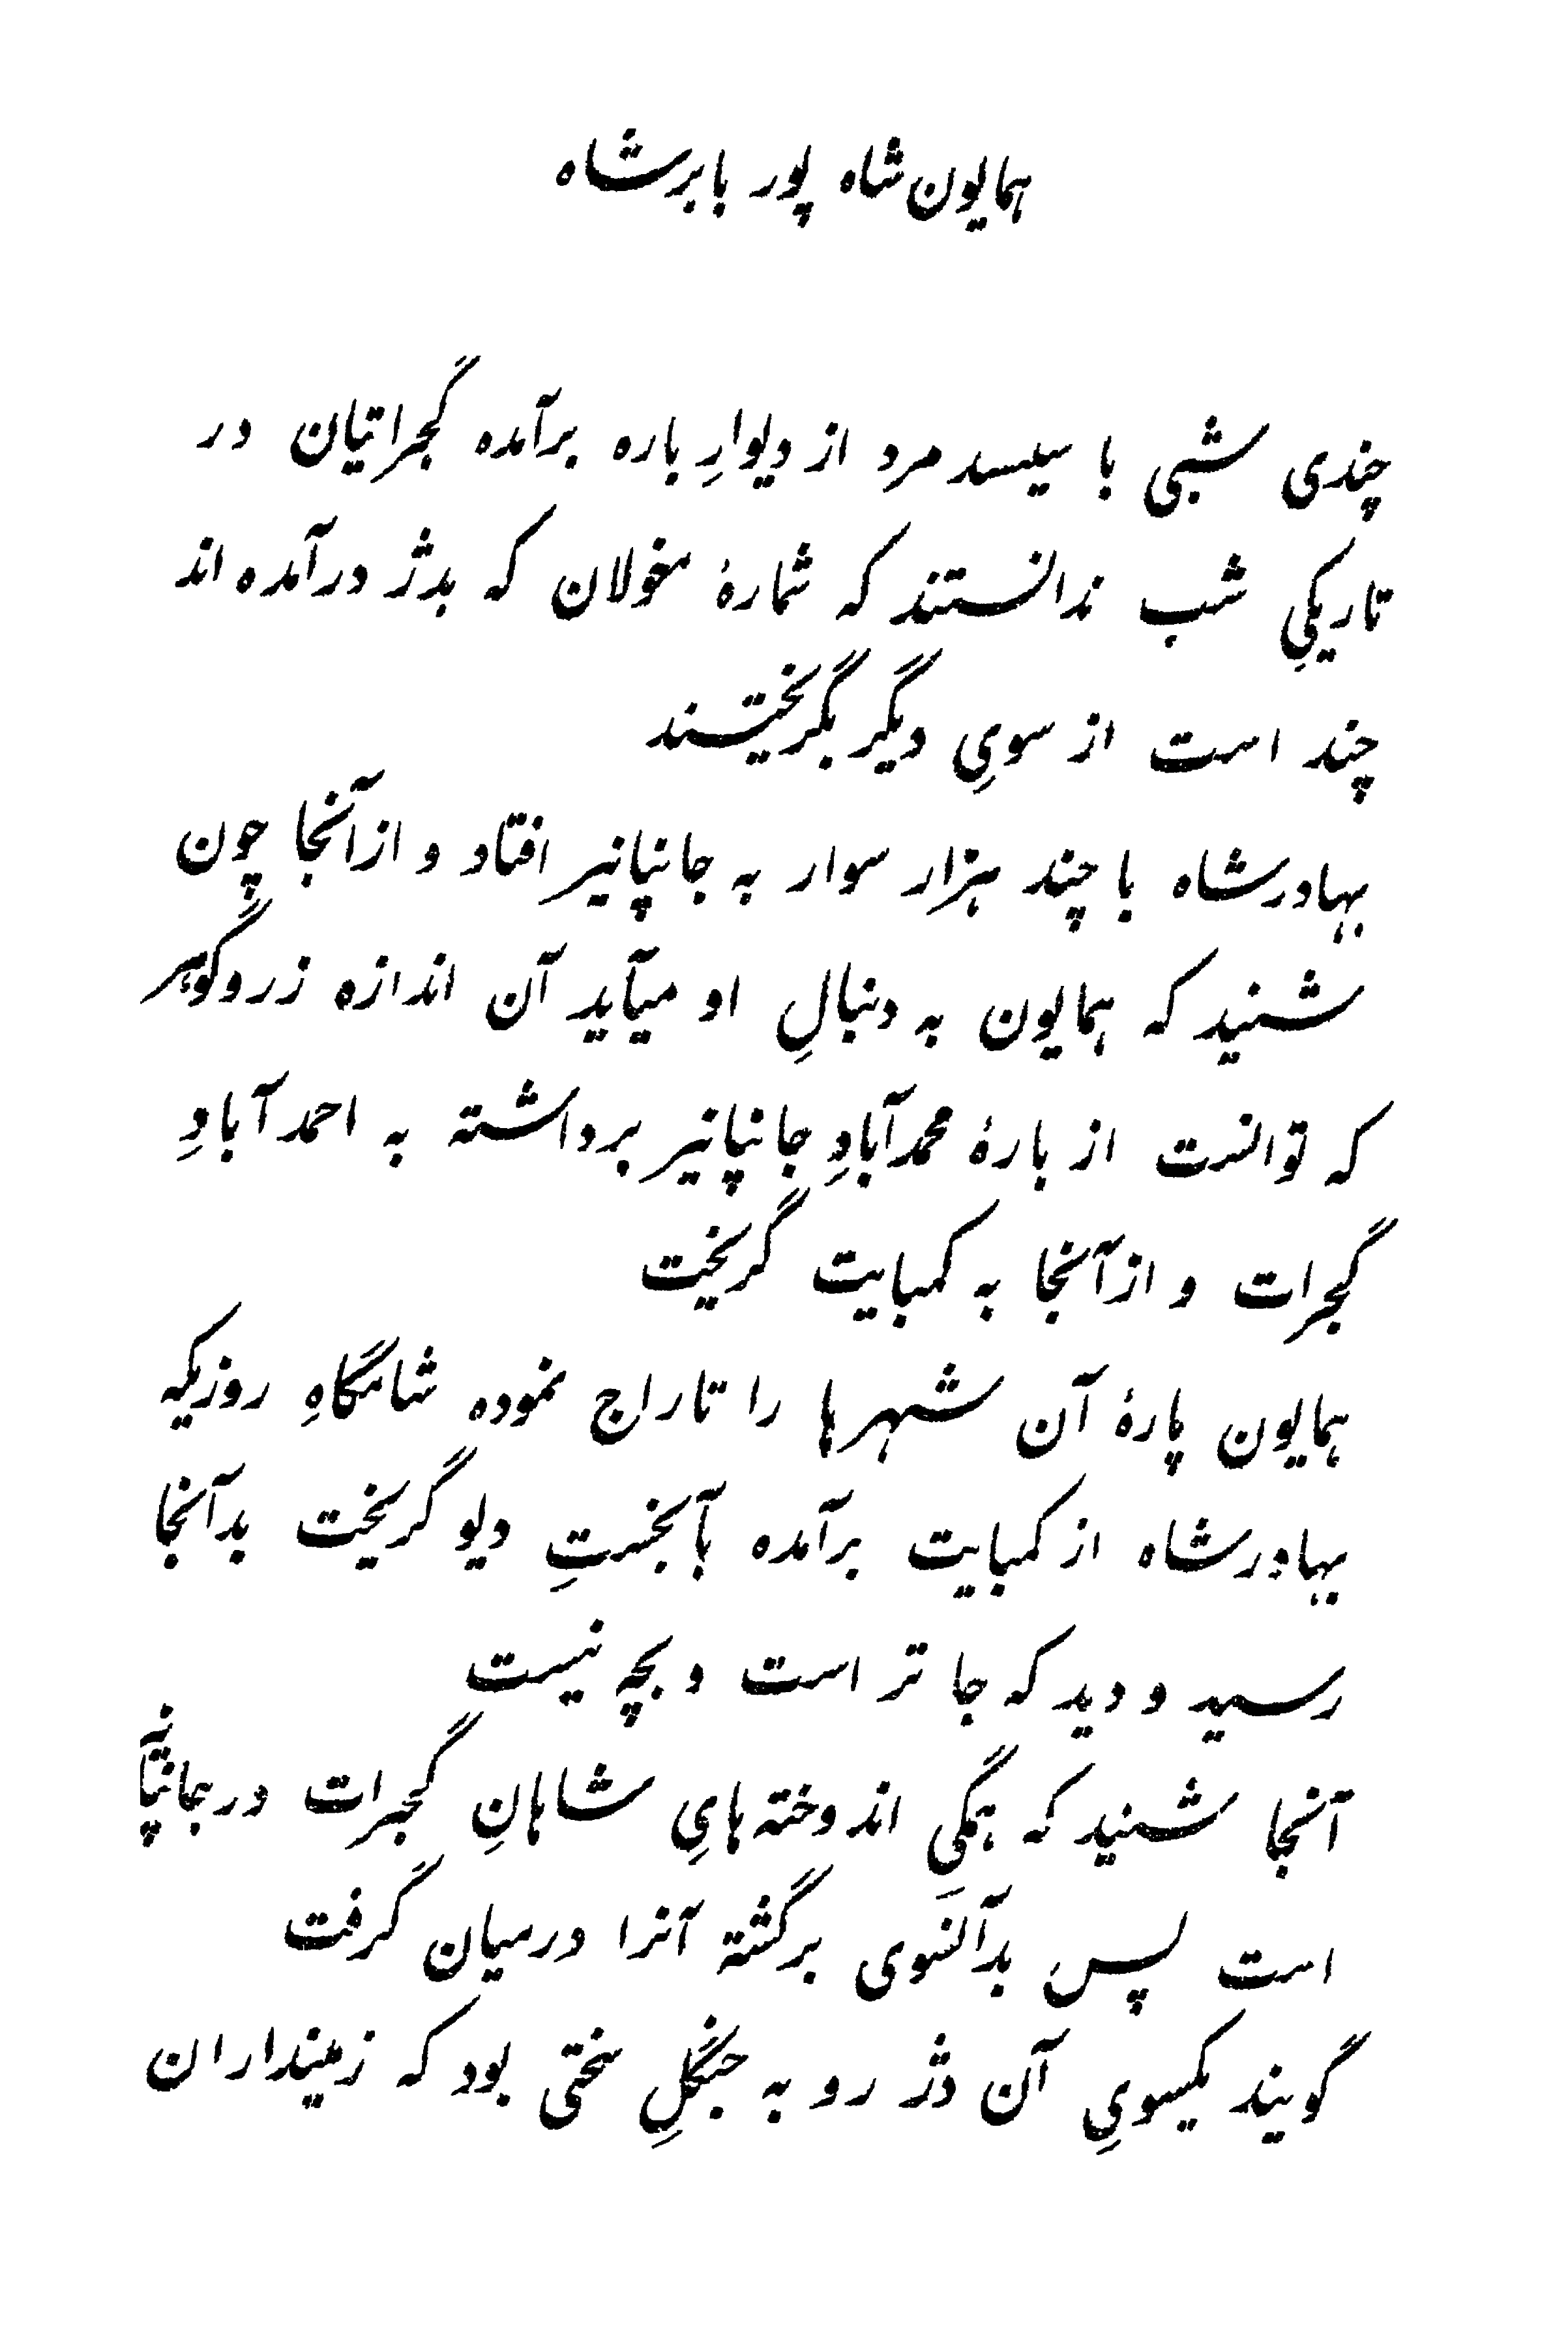 همایون شاه پور بابرشاه
چندی شبی با سیسد مرد از دیوارِ باره برآمده گجراتیان در
تاریکیِ شب ندانستند که شمارهٔ مغولان که بدژ درآمده اند
چند است از سویِ دیگر بگریختند
بهادرشاه با چند هزار سوار به جانپانیر افتاد و ازآنجا چون
شنید که همایون به دنبالِ او میآید آن اندازه زر و گوهر
که توانست از بارهٔ محمدآبادِ جانپانیر برداشته به احمدآبادِ
گجرات و ازآنجا به کمبایت گریخت
همایون پارهٔ آن شهرها را تاراج نموده شامگاهِ روزیکه
بهادرشاه از کمبایت برآمده بآبخستِ دیو گریخت بدآنجا
رسید و دید که جا تر است و بچه نیست
آنجا شنید که همگیِ اندوخته‌هایِ شاهانِ گجرات در جانپانیر
است پس بدآنسوی برگشته آنرا درمیان گرفت
گویند یکسویِ آن دژ رو به جنگلِ سختی بود که زمینداران